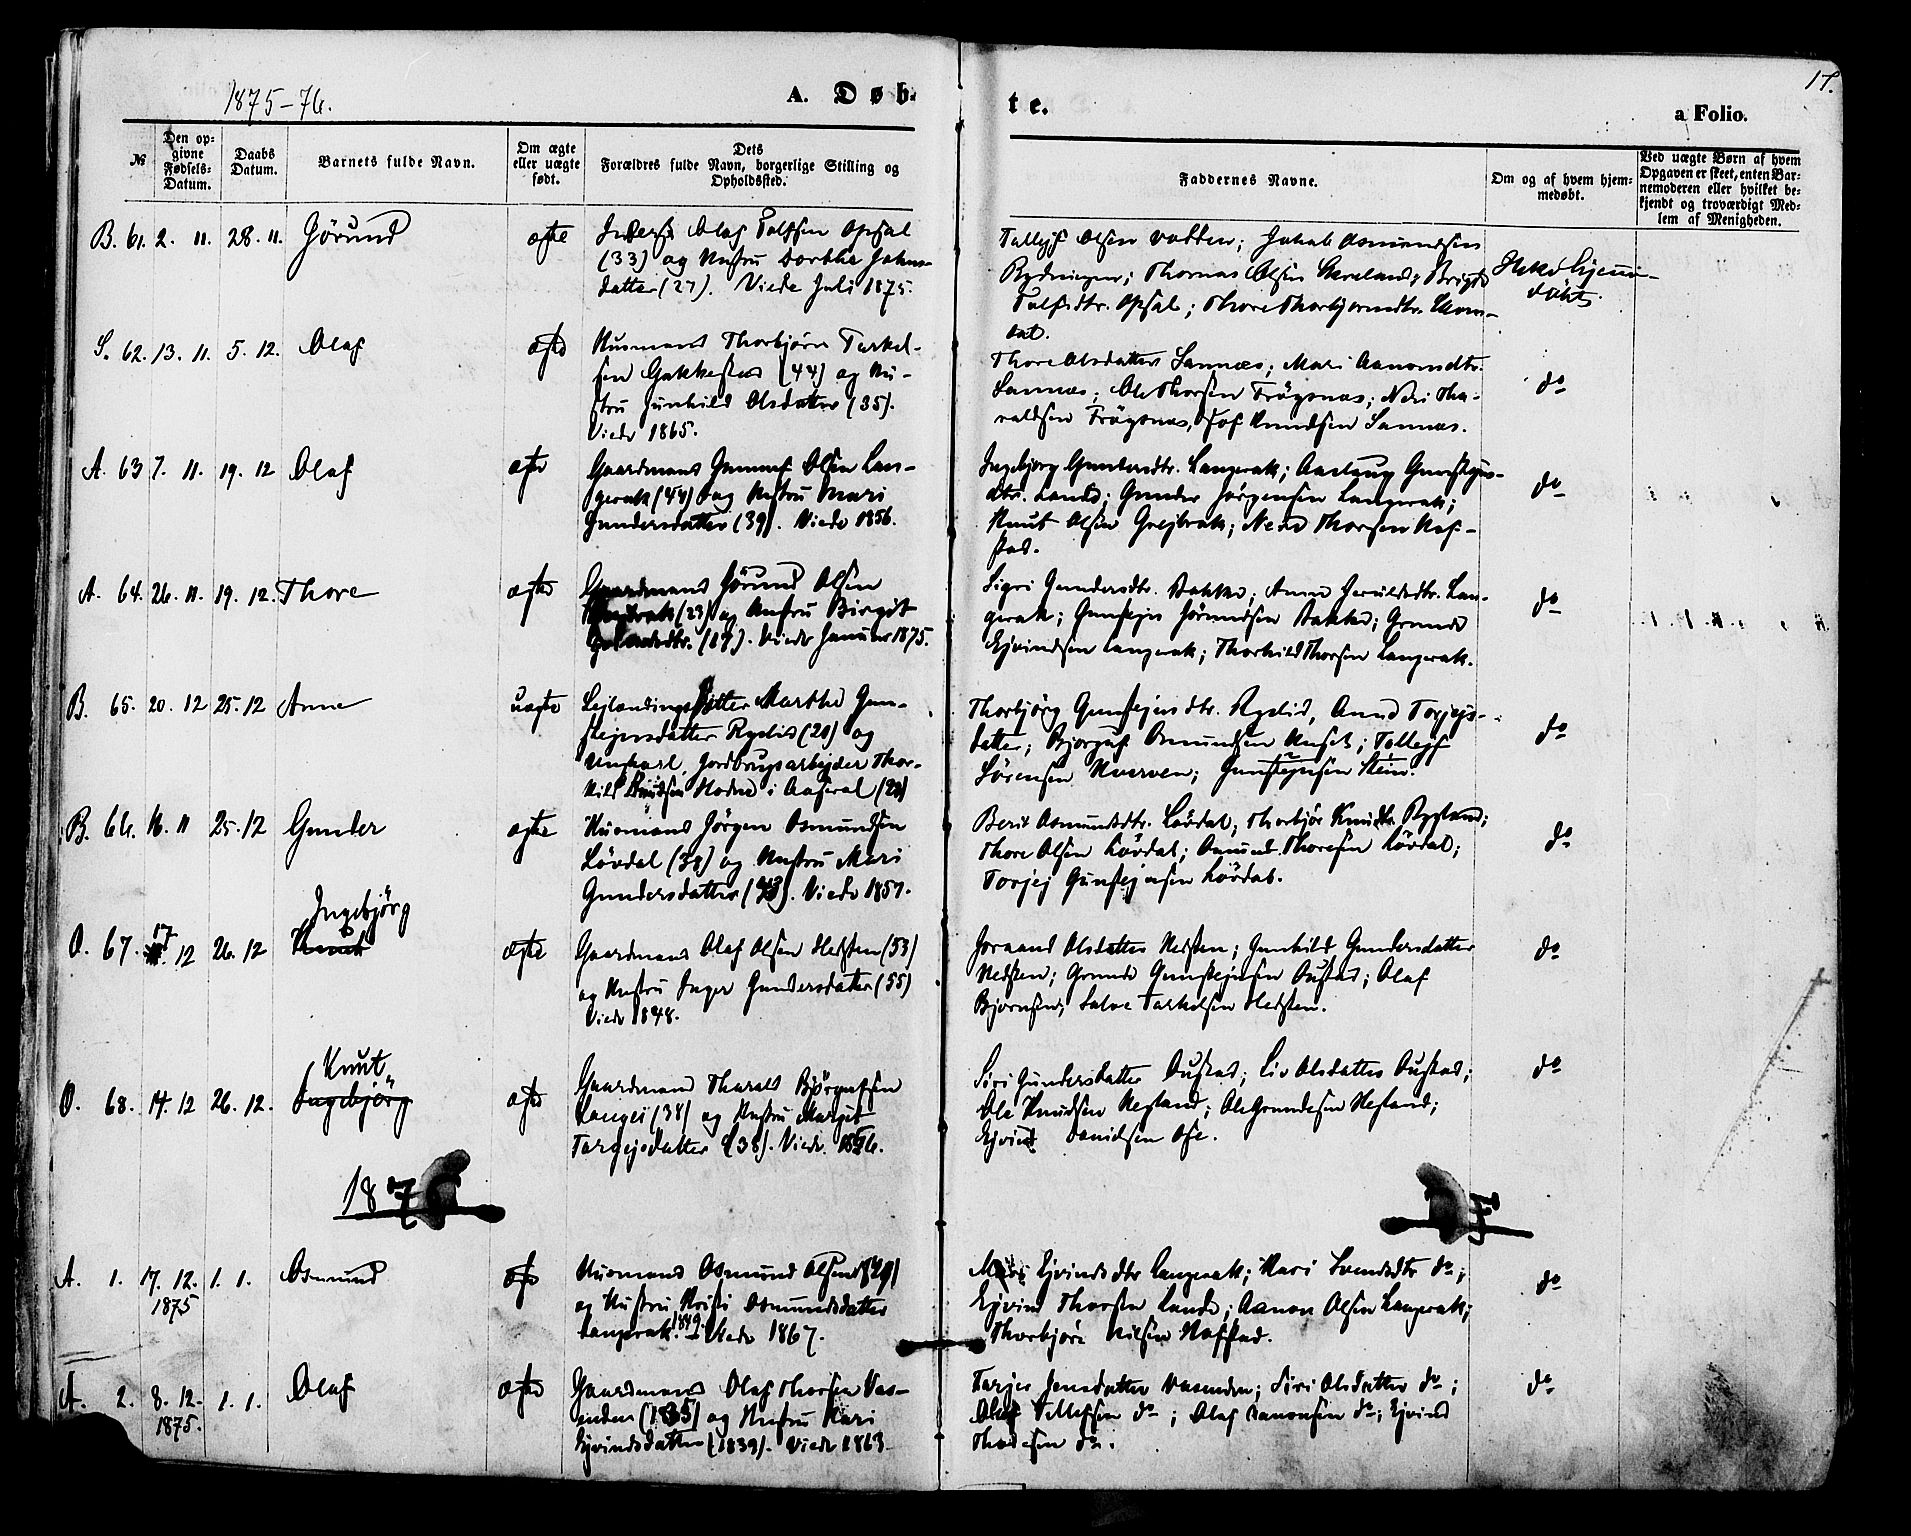 1875-76.
A. Døb-
te.
17.
a Folio.
№
Den op-
givne
Fødsels-
Datum.
Daabs
Datum.
Barnets fulde Navn.
Om ægte
eller uægte
født.
Dets
Forældres fulde Navn, borgerlige Stilling og
Opholdssted.
Faddernes Navne.
Om og af hvem hjem-
medøbt.
Ved uægte Børn af hvem
Opgaven er skeet, enten Bar-
nemoderen eller hvilket be-
kjendt og troværdigt Med-
lem af Menigheden.
B. 61. 2. 11. 28. 11. Jörund ægte Olaf Opsal
(33) og Kustru Dorthe Johns-
datter (27). Viede Juli 1875.
Tallejf Olsen Vatten; Jakob Osmundsen
Thomas Olsen
Opsal; Thore Thorbjörnsdtr.
dal.
Ikke hjemme-
döbt.
S. 62. 13. 11. 5. 12. Olaf ægte Husmand Thorbjörn Terkel-
sen (44) og Ku-
stru Gunhild Olsdatter (35).
Viede 1865.
Thore Olsdatter Sannæs; Mari Aanonsdtr.
Sannæs; Ole Thorsen Frögsnæs; Neri Tha-
raldsen Frögsnæs, Knudsen Sannæs.
do
A. 63 7. 11. 19. 12 Olaf ægte Gaardmand Gunnuf Olsen Lan-
gerak (44) og Kustru Mari
Gundersdatter (39). Viede 1856.
Ingebjorg Gundersdtr. Langerak; Aaslaug Gunstejns-
dtr. Lande; Gunder Jörgensen Langerak;
Knut Olsen Grejbrok; Thorsen Haf-
stad.
do
A. 64. 26. 11. 19. 12. Thore ægte Gaardmand Jörund Olsen
(23) og Kustru Birgit
(19). Viede Januar 1875.
Sigri Gundersdtr. Bakke; Anne Lan-
gerak; Gunstejn Jörundsen Bakke; Grunde
Ejvindsen Langerak; Thorkild Thorsen Langerak.
do
B. 65. 20. 12 25. 12 Anne uægte Lejlændingsdatter Marthe Gun-
stejnsdatter Rysdis (20) og
Ungkarl, Jordbrugsarbejder Thor-
kild Hodne i Aaseral (20)
Thorbjörg Gunstejnsdtr. Anne Torjejs-
datter; Bjorguf Osmundsen Tallejf
Sörensen Kverven; Gunstejnsen Stein.
do
B. 66. 16. 11 25. 12 Gunder ægte Husmand Jörgen Osmundsen
Lövdal (38) og Kustru Mari
Gundersdatter (43). Viede 1857.
Berit Osmundsdtr. Lövdal; Thorbjör Rysland;
Thore Olsen Lövdal; Osmund Thoresen Lövdal;
Torjej Gunstejnsen Lövdal.
do
O. 67. 17. 12 26. 12 Ingebjörg
Knut ægte Gaardmand Olaf Olsen Hedsten (53)
og Kustru Inger Gundersdatter (55)
Viede 1848.
Joraand Olsdatter Hedsten; Gunhild Gundersdatter
Hedsten; Grunde Gunstejnsen Oustad; Olaf
Bjornsen; Salve Tarkelsen Hedsten.
do
O. 68. 14. 12 26. 12. Knut
Ingebjörg ægte Gaardmand Tharald Bjorgufsen
Langei (38) og Kustru Margit
Targejsdatter (38). Viede 1856.
Siri Gundersdatter Oustad; Liv Olsdatter Oustad;
Ole Knudsen Hegland; Ole Grundesen Hegland;
Ejvind Danielsen Ose.
do
1876
A. 1. 17. 12. 1. 1. Osmund ægte Husmand Osmund Olsen
1875
og Kustru Kristi Osmundsdatter
Langerak. 1849. Viede 1867.
Mari Ejvindsdtr Langerak; Kari Svendsdtr do;
Ejvind Thorsen Lande; Aanon Olsen Langerak;
Thorbjörn Nilsen Hafstad.
do
A. 2. 8. 12. 1. 1. Olaf ægte Gaardmand Olaf Thorsen Vas-
1875.
enden (1835) og Kustru Kari
Ejvindsdatter (1839). Viede 1863.
Tarjer Jensdatter Vasenden; Siri Olsdatter do;
Olaf Tellefsen do; Olaf Aanonsen do; Ejvind
Thoresen do.
do